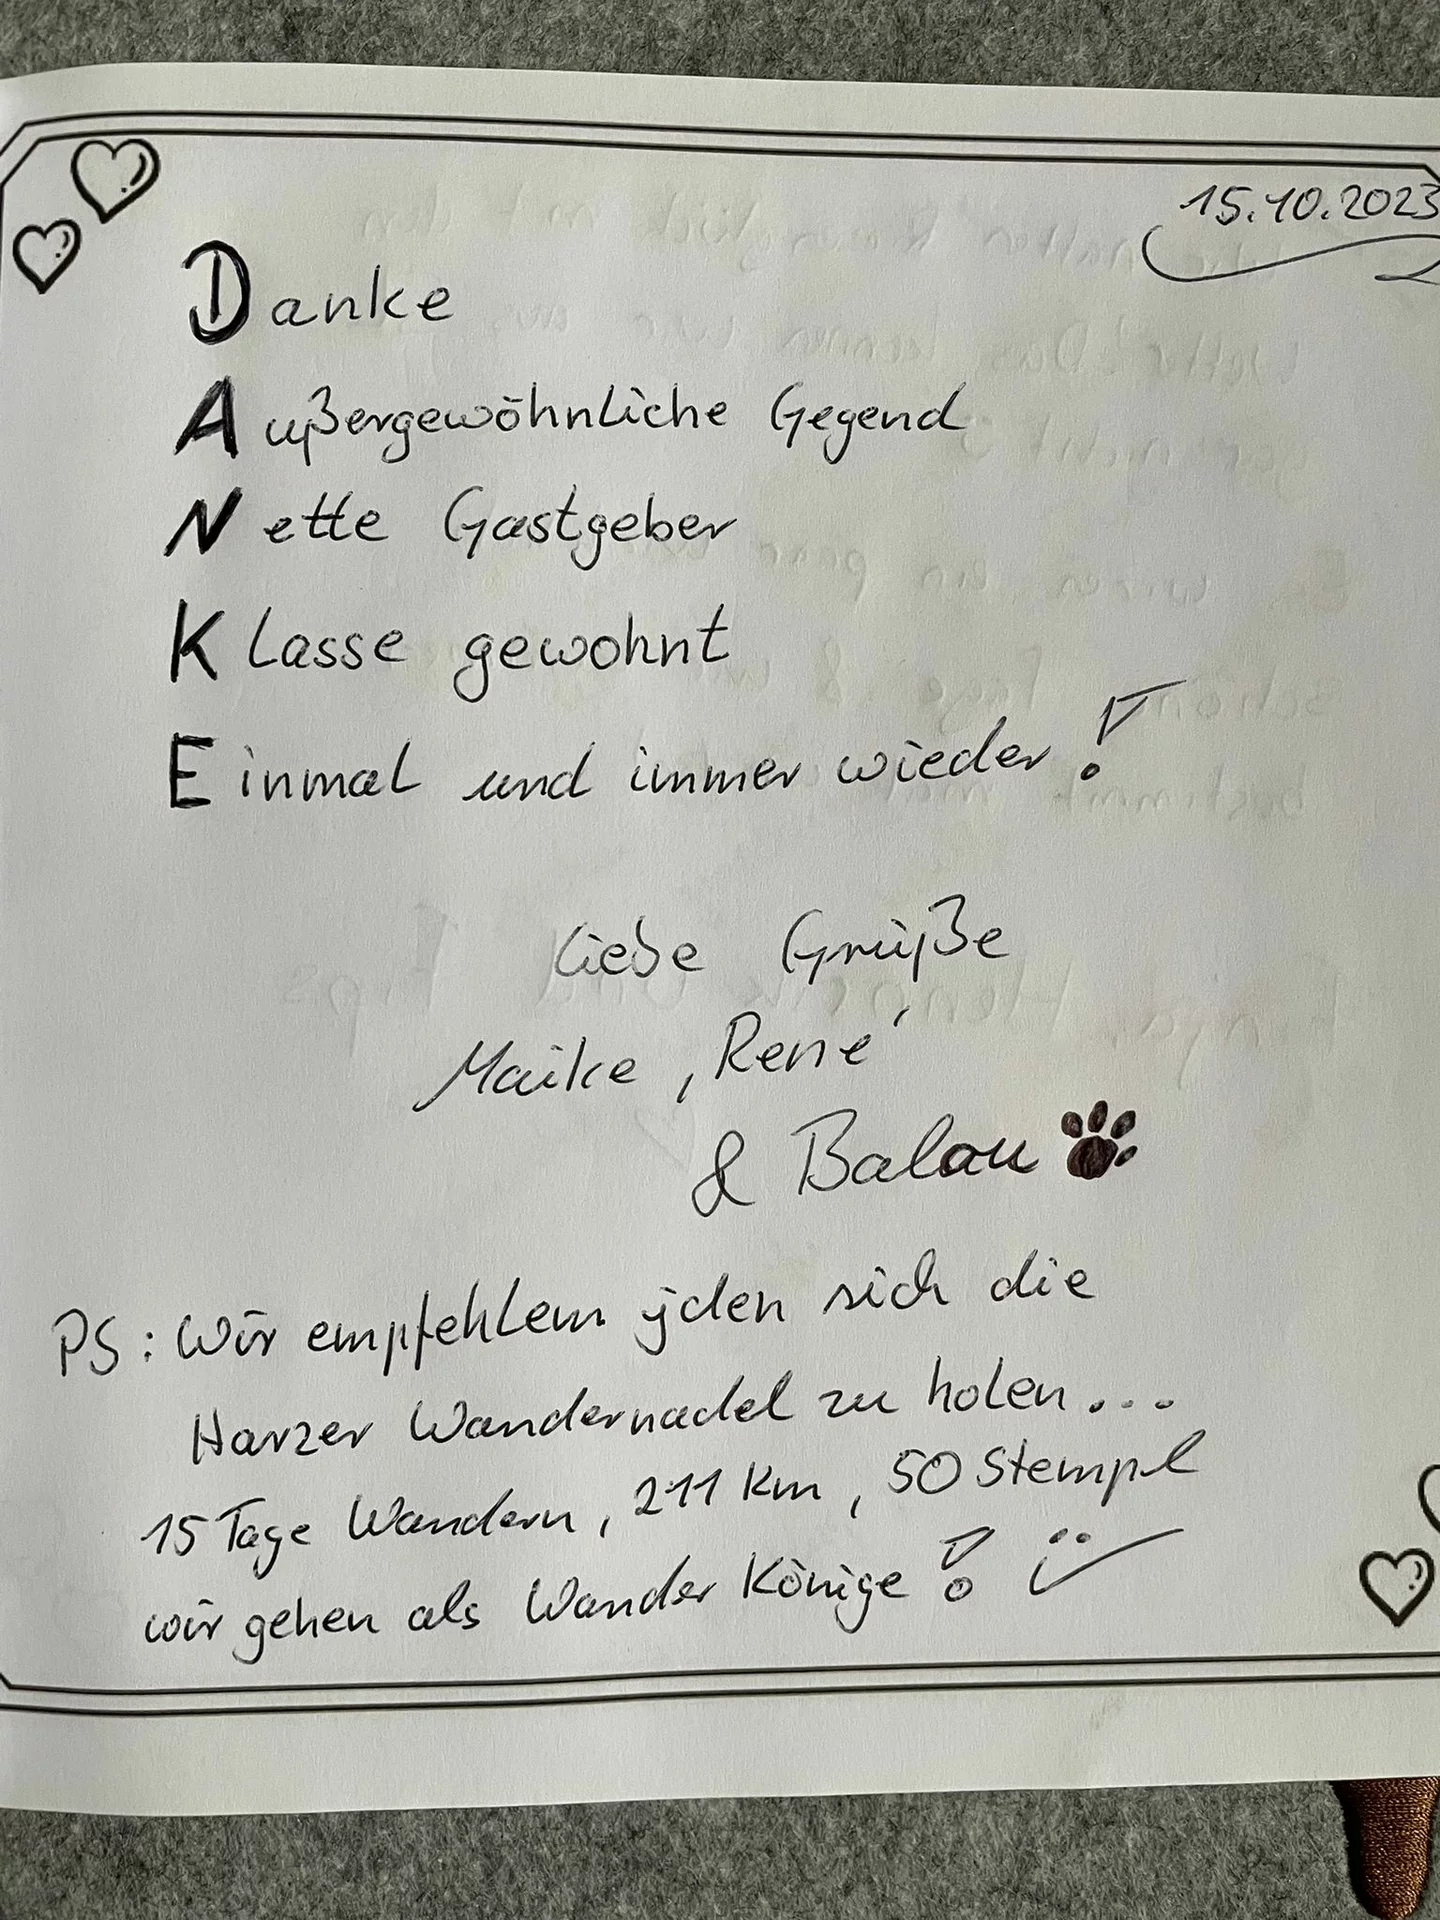 15.10.2023
Danke
Außergewöhnliche Gegend
Nette Gastgeber
Klasse gewohnt
Einmal und immer wieder!
Liebe Grüße
Maike, René
& Balou
PS: Wir empfehlen jeden sich die
Harzer Wandernadel zu holen...
15 Tage Wandern, 211 Km, 50 Stempel
wir gehen als Wander Könige! :)